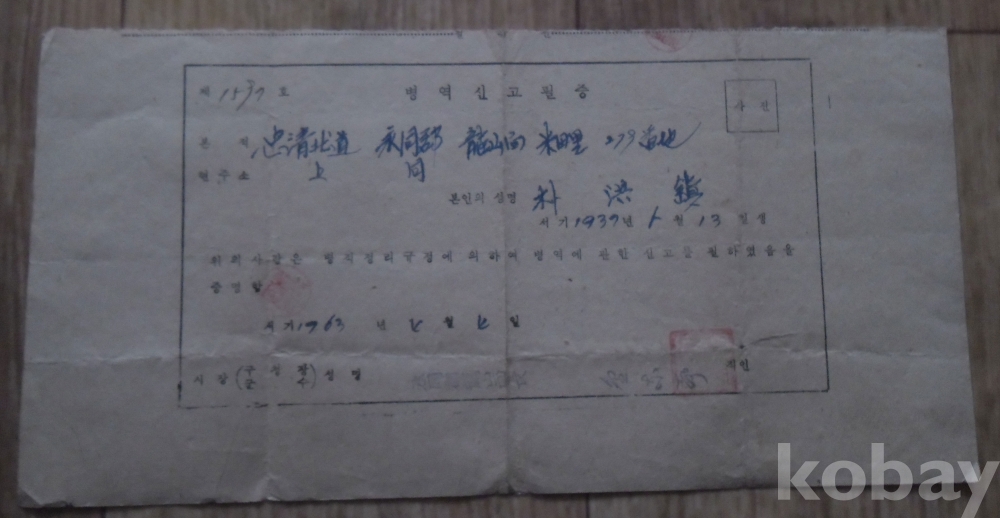 제 1537 호 병역신고필증
사진
본적 忠清北道 永同郡 龍山面 米田里 279番地
현주소 上 同
본인의 성명 朴洪鎭
서기 1937년 1월 13일생
위의 사람은 병적정리규정에 의하여 병역에 관한 신고를 필하였음을
증명함
서기 1963년 월 일
시장(구청장 군수) 성명
직인
kobay